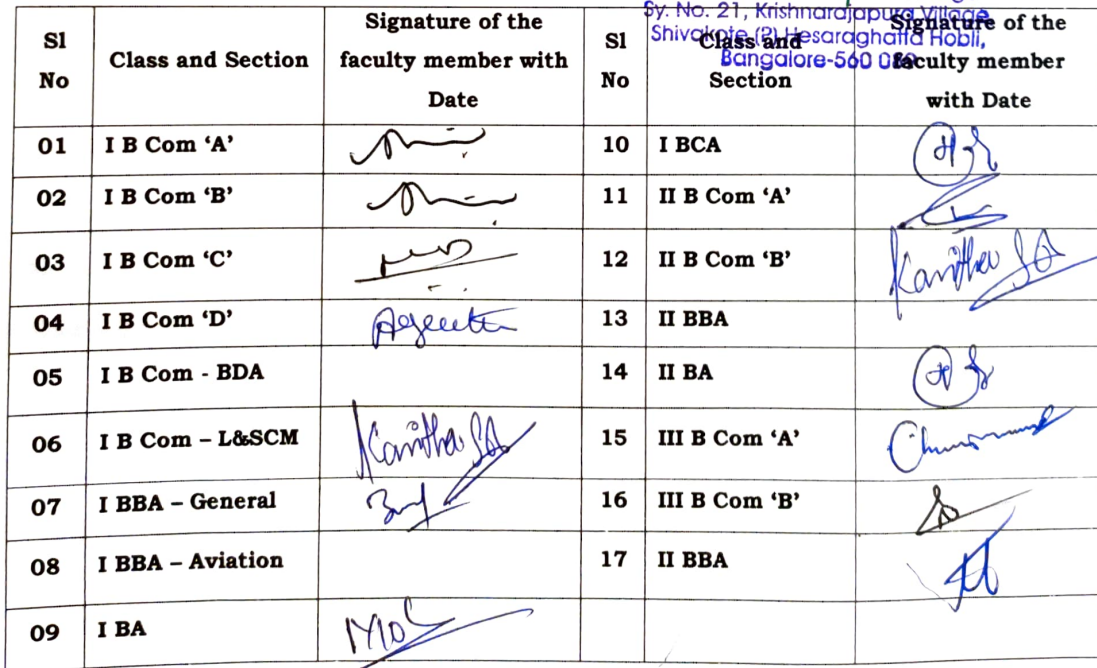 Sy. No. 21, Krishnarajapura Village,
Shivakote (P) Hesaraghatta Hobli,
Bangalore-560 089
Sl No Class and Section Signature of the faculty member with Date Sl No Class and Section Signature of the faculty member with Date
01 I B Com ‘A’ 10 I BCA
02 I B Com ‘B’ 11 II B Com ‘A’
03 I B Com ‘C’ 12 II B Com ‘B’ Kavitha
04 I B Com ‘D’ 13 II BBA
05 I B Com - BDA 14 II BA
06 I B Com – L&SCM Kavitha 15 III B Com ‘A’
07 I BBA – General 16 III B Com ‘B’
08 I BBA – Aviation 17 II BBA
09 I BA